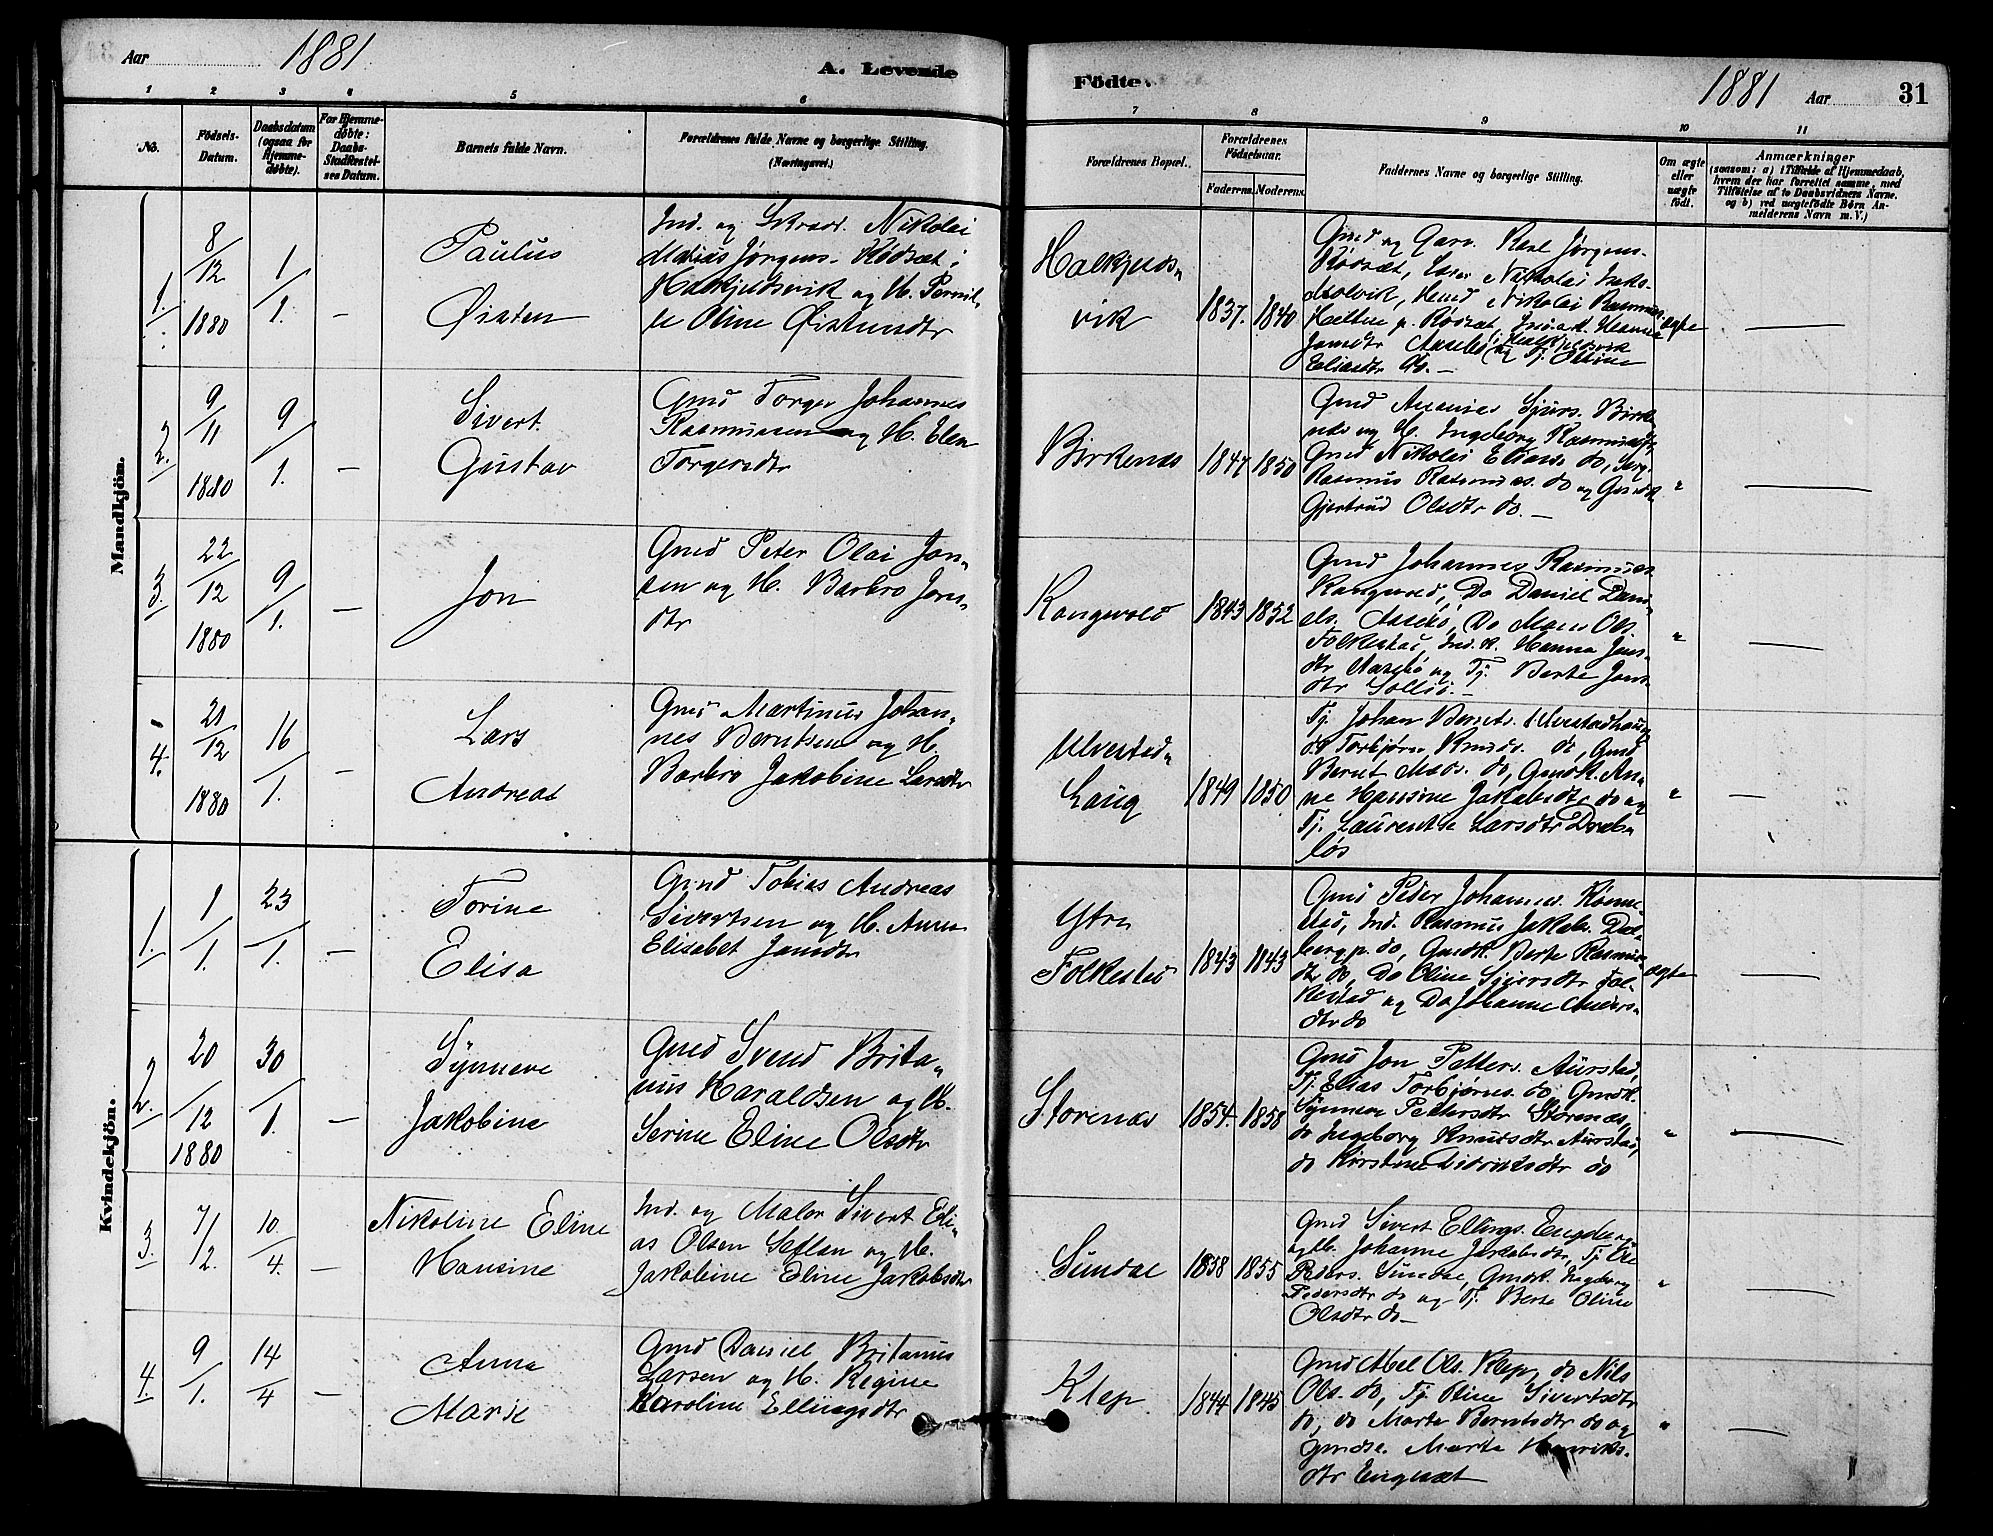 Aar 1881
A. Levende
Födte.
1881 Aar 31
1 2 3 4 5 6 7 8 9 10 11
No.
Födsels-
Datum.
Daabsdatum
(ogsaa for
Hjemme-
døbte).
For Hjemme-
døbte:
Daabs-
Stadfæstel-
ses Datum.
Barnets fulde Navn.
Forældrenes fulde Navne og borgerlige Stilling.
(Næringsvei.)
Forældrenes Bopæl.
Forældrenes
Födselsaar.
Faderens. Moderens.
Faddernes Navne og borgerlige Stilling.
Om ægte
eller
uægte
födt.
Anmærkninger
(saasom: a) i Tilfælde af Hjemmedaab,
hvem der har forrettet samme, med
Tilföielse af to Daabsvidners Navne.
og b) ved uægtefödte Börn An-
melderens Navn m. V.)
Mandkjön.
1. 8/12 1880 1/1. –
Paulus
Øisten
Ind. og Skræd. Nikolai
Matias Jørgens. Rødsæt i
Halkjeldsvik og H. Pernil-
le Oline Østensdtr
Halkjelds-
vik
1837. 1840
Gmd og Garv. Karl Jørgens.
Rødsæt, Nikolai
Nikolai Rasmus.
p. Rødsæt,
Jansdtr Aasebø Halkjeldsvik
og Tj. Oline
Eliasdtr do. –
ægte
2. 9/11 1880 9/1. –
Sivert
Gustav
Gmd Torger Johannes
Rasmussen og H. Elen
Torgersdtr
Birkenæs
1847 1850
Gmd Ananias Sjurs. Birke
næs og H. Ingeborg Rasmusdtr,
Gmd Nikolai Elias. do,
Rasmus Rasmus. do og
Gjertrud Olsdtr do. –
"
3. 22/12 1880 9/1. –
Jon
Gmd Peter Olai Jon-
sen og H. Barbro Jons-
dtr
Kongsvold
1843 1852
Gmd Johannes Rasmus.
Do Daniel Dani-
els. Aasebø, Do Mons Ols.
Folkestad, Ind. k. Hanna Jens-
dtr Aasebø og Tj. Berte Jons-
dtr
"
4. 21/12 1880 16/1. –
Lars
Andreas
Gmd Martinus Johan-
nes Berntsen og H.
Barbro Jakobine Larsdtr
Ulvestad-
haug
1849 1850
Tj. Johan Bernts. Ulvestadhaug
do Torbjørn Knuds. do, Gmd
Bernt Mads. do, Gmdk. An-
ne Hansine Jakobsdtr do og
Tj. Laurentse Larsdtr Drab-
løs
"
Kvindekjön.
1. 1/1. 23/1. –
Torine
Elisa
Gmd Tobias Andreas
Sivertsen og H. Anne
Elisabet Jonsdtr
Ytre
Folkestad
1843 1843
Gmd Peder Johannes. Rønne-
stad, Ind. Rasmus Jakobs. Dal-
berg p. do, Gmdk. Berte Rasmus-
dtr do, Do Oline Sjursdtr Fol-
kestad og Do Johanne Anders-
dtr do
ægte
2. 20/12 1880 30/1. –
Synneve
Jakobine
Gmd Svend Brita-
nus Haraldsen og H.
Serine Eline Olsdtr
Storenæs
1854. 1858
Gmd Jon Petters. Aurstad,
Tj. Elias Torbjørns. do, Gmdk.
Synneve Pettersdtr Storenæs,
do Ingeborg Knudsdtr Aurstad,
do Kirstine Didriksdtr do
"
3. 7/2. 10/4. –
Nikoline Eline
Hansine
Ind. og Maler Sivert Eli-
as Olsen Seflan og H.
Jakobine Eline Jakobsdtr
Sundal
1858 1855
Gmd Sivert Ellings. Engeberg
og H. Johanne Jakobsdtr, Tj. Ole
Peders. Sundal, Gmdk. Ingeborg
Pedersdtr do og Tj. Berte Oline
Olsdtr do –
"
4. 9/1. 14/4 –
Anna
Marie
Gmd Daniel Britanus
Larsen og H. Regine
Karoline Ellingsdtr
Klep
1844 1845
Gmd Abel Ols. Klep, do Nils
Ols. do, Tj. Oline Sivertsdtr
do, do Marte Berntsdtr do og
Gmdk. Marte Henriks-
dtr Engesæt
"